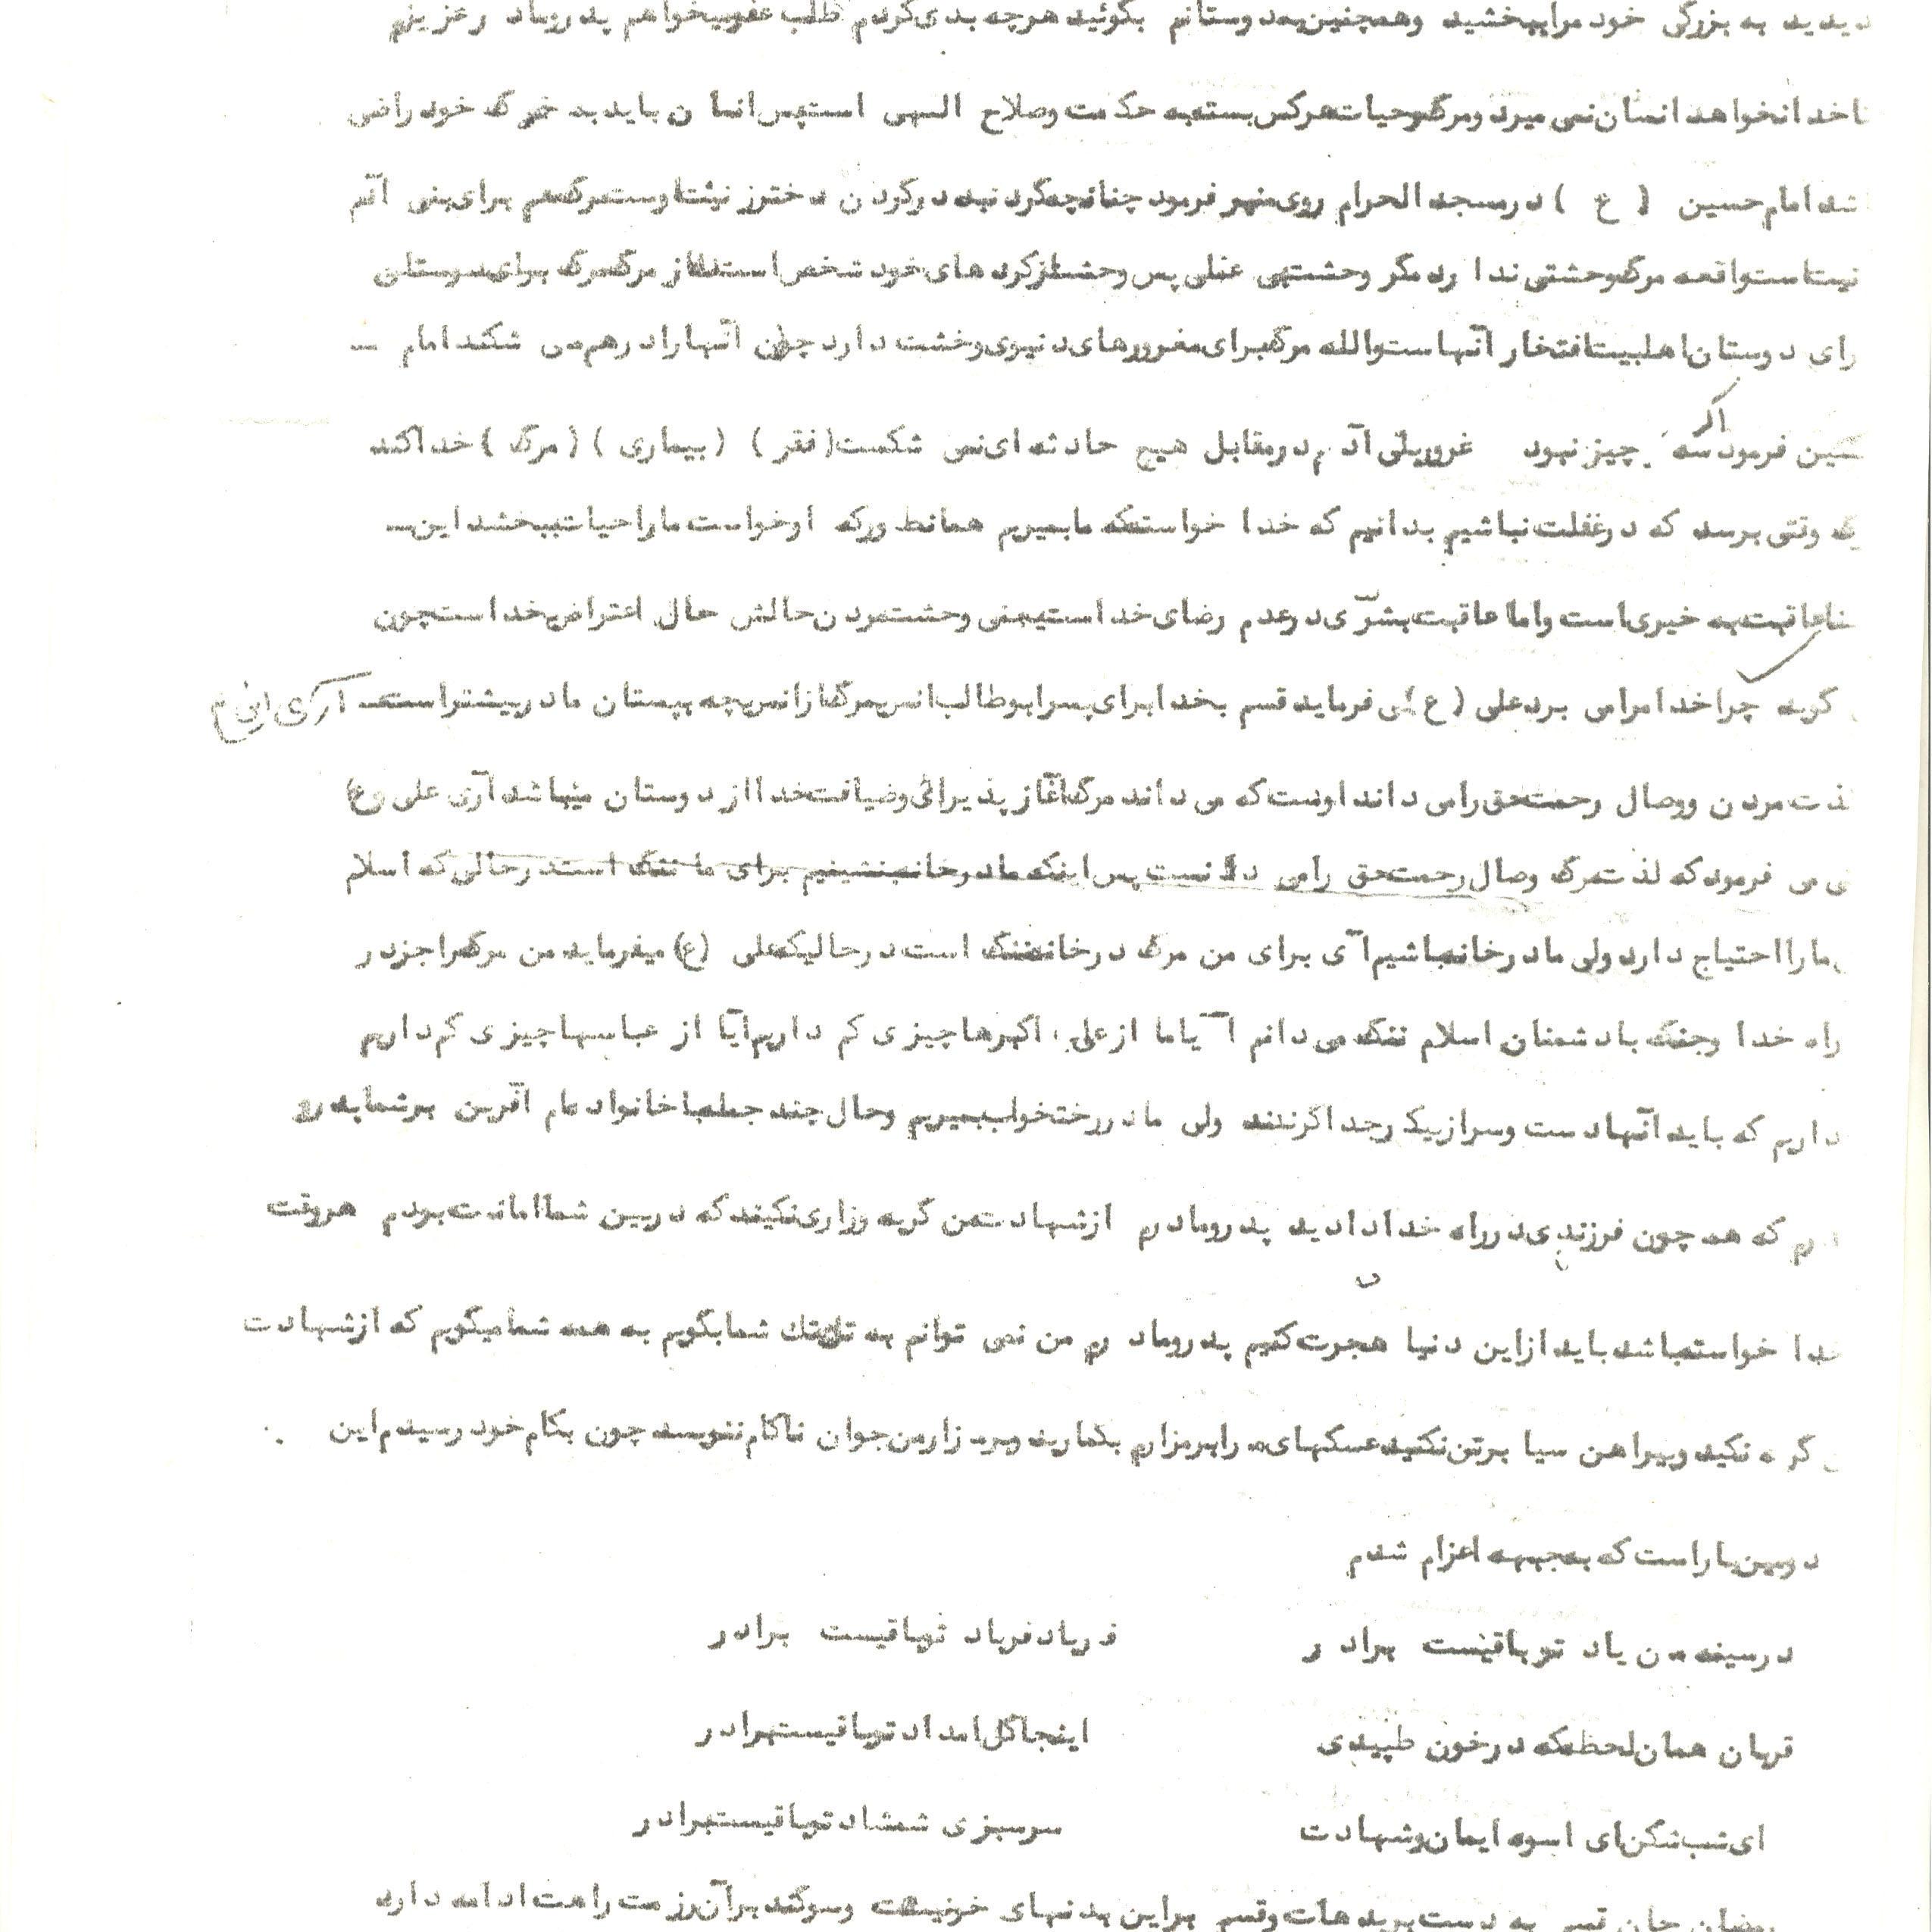 دیدید به بزرگی خود مرا ببخشید وهمچنین به دوستانم بگوئید هرچه بدی کردم طلب عفو میخواهم پدر و مادر عزیزم
تا خدا نخواهد انسان نمی میرد ومرگ وحیات هرکس بسته به حکمت وصلاح الهی است پس انسان باید به مرگ خود راضی
شد امام حسین ( ع ) در مسجد الحرام روی منبر فرمود چنانچه گردنبند در گردن دختر زینت اوست مرگ هم برای بنی آدم
زینت است واقعه مرگ وحشتی ندارد مگر وحشت بی عقلی پس وحشت از کرده های خود شخص است نه از مرگ مرگ برای دوستان
رای دوستان اهلبیت افتخار آنهاست والله مرگ برای مغرورهای دنیوی وحشت دارد چون آنها را در هم می شکند امام —
حسین فرمود اگر سه چیز نبود غرور بنی آدم در مقابل هیچ حادثه ای نمی شکست ( فقر ) ( بیماری ) ( مرگ ) خدا کند
یک وقتی برسد که در غفلت نباشیم بدانیم که خدا خواسته که ما بمیریم همانطور که او خواست ما را حیات ببخشد این —
عاقبت به خیری است واما عاقبت بشری در عدم رضای خدا است یعنی وحشت مردن حالش حال اعتراض بخدا است چون
گوید چرا خدا مرا می برد علی ( ع ) می فرماید قسم بخدا برای پسر ابوطالب انس مرگ از انس بچه بپستان مادر بیشتر است — آری این
لذت مردن ووصال رحمت حق را می داند اوست که می داند مرگ آغاز پذیرائی وضیافت خدا از دوستان میباشد آری علی (ع)
می فرمود که لذت مرگ وصال رحمت حق را می دانست پس اینکه ما در خانه بنشینیم برای ما ننگ است در حالی که اسلام
ما را احتیاج دارد ولی ما در خانه باشیم آی برای من مرگ در خانه ننگ است در حالیکه علی (ع) میفرماید من مرگ را جز در
راه خدا وجنگ با دشمنان اسلام ننگ می دانم آیا ما از علی اکبرها چیزی کم داریم آیا از عباسها چیزی کم داریم
داریم که باید آنها دست وسر از پیکر جدا کرنند ولی ما در رختخواب بمیریم وحال چند جمله با خانواده ام آفرین بر شما پدر و
که هم چون فرزندی در راه خدا دادید پدر و مادرم از شهادت من گریه وزاری نکنید که در بین شما امانت بودم هر وقت
خدا خواسته باشد باید از این دنیا هجرت کنیم پدر و مادرم من نمی توانم به تک تک شما بگویم به همه شما میگویم که از شهادت
گریه نکید وپیراهن سیا برتن نکنید عسکهای مرا بر مزارم بگذارید وبر مزار من جوان ناکام ننویسد چون بکام خود رسیدم این
دومین بار است که به جبهه اعزام شدم
در سینه من یاد تو باقیست برادر فریاد فریاد تو باقیست برادر
قربان همان لحظه که در خون طپیدی اینجا گل امداد تو باقیست برادر
ای شب شکن ای اسوه ایمان وشهادت سرسبزی شمشاد تو باقیست برادر
رمضان جان قسم به دست بریده ات وقسم براین بدنهای خونینت وسوگند برآن رزمت راهت ادامه دارد